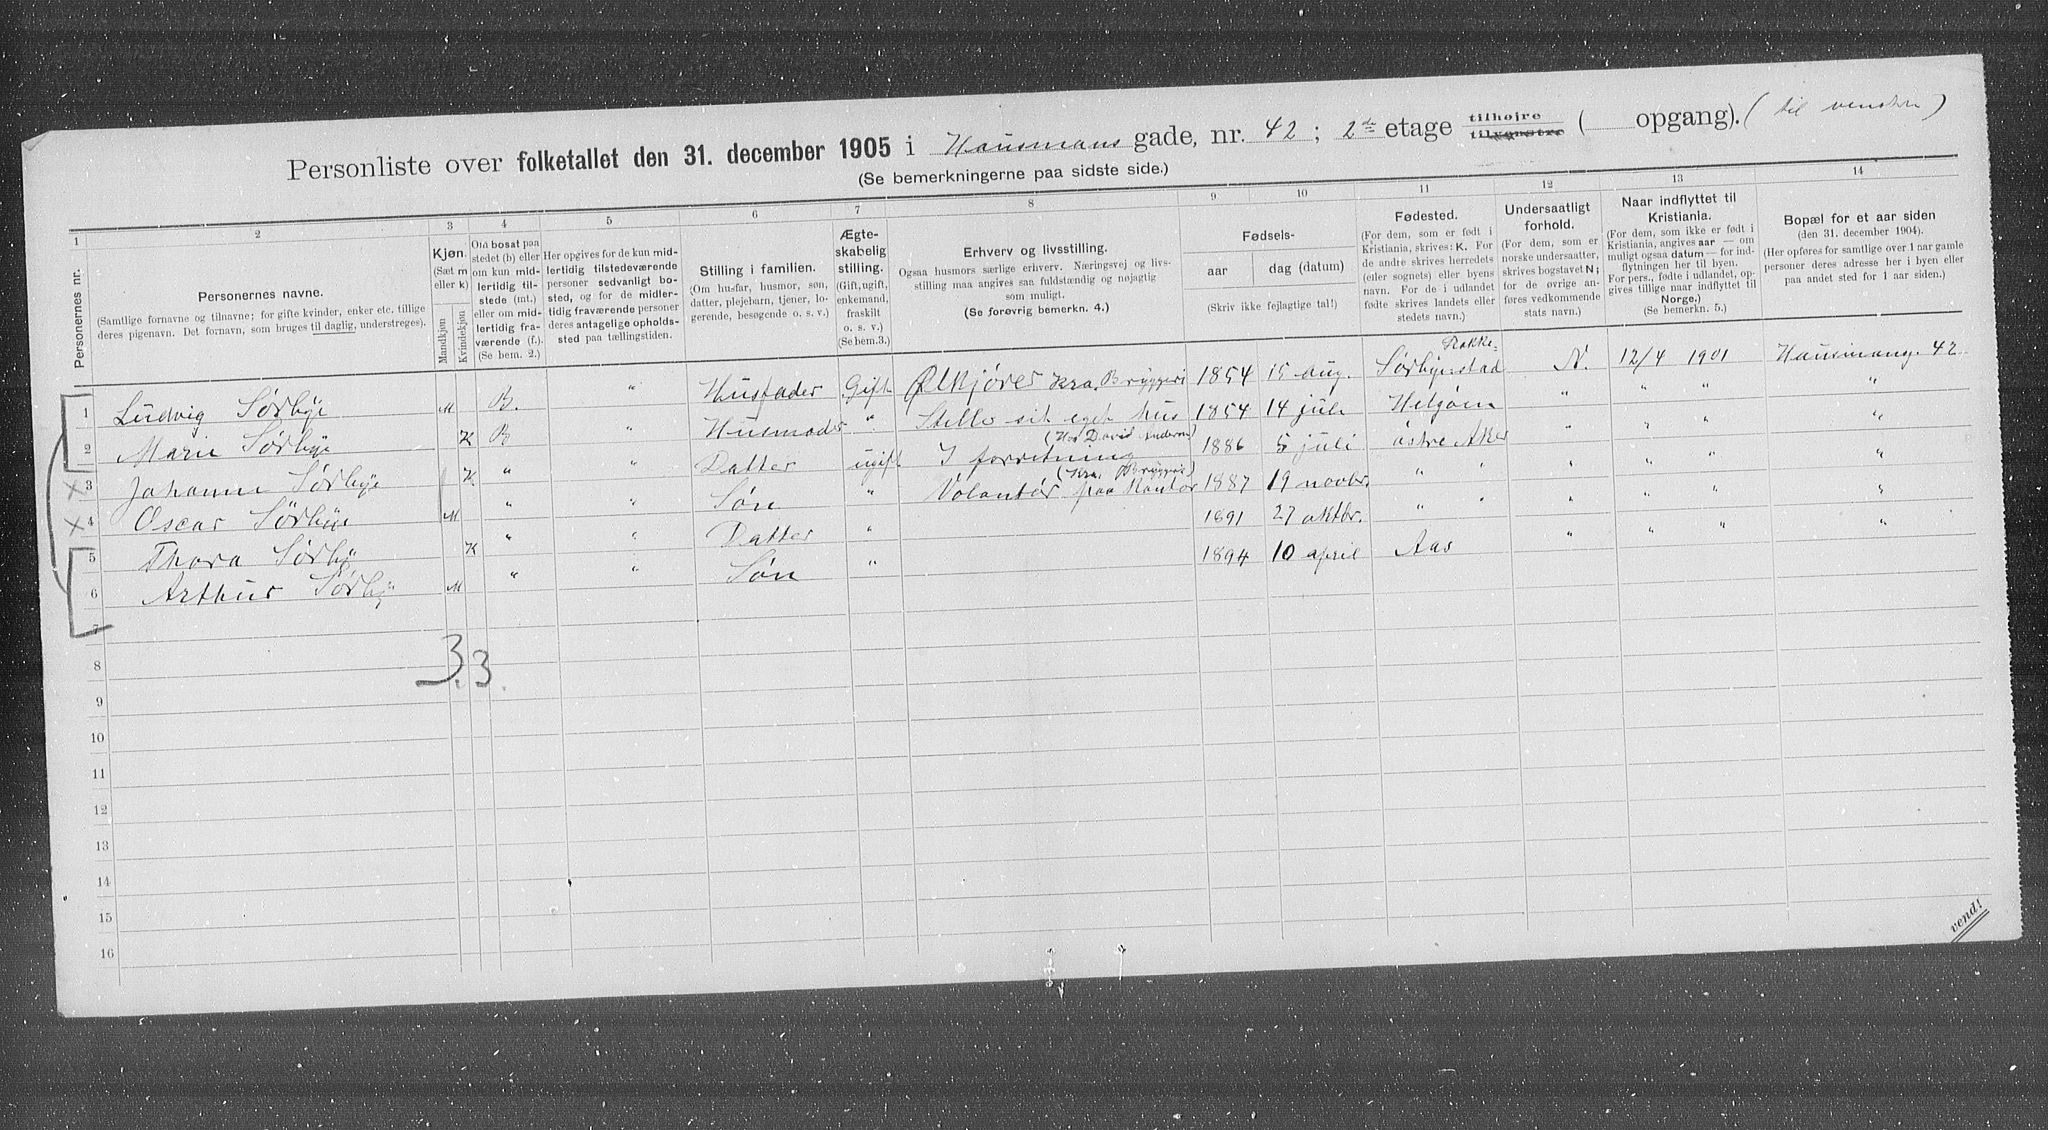 Personliste over folketallet den 31. december 1905 i Hausmans gade, nr. 42; 2de etage tilhøjre tilvenstre ( opgang). (til venstre)
(Se bemerkningerne paa sidste side.)
1 2 3 4 5 6 7 8 9 10 11 12 13 14
Personernes nr.
Personernes navne.
(Samtlige fornavne og tilnavne; for gifte kvinder, enker etc. tillige
deres pigenavn. Det fornavn, som bruges til daglig, understreges).
Kjøn.
(Sæt m
eller k)
Mandkjøn
Kvindekjøn
Om bosat paa
stedet (b) eller
om kun mid-
lertidig til-
stede (mt.)
eller om mid-
lertidig fra-
værende (f.).
(Se bem. 2.)
Her opgives for de kun mid-
lertidig tilstedeværende
personer sedvanlig bo-
sted, og for de midler-
tidig fraværende personer
deres antagelige opholds-
sted paa tællingstiden.
Stilling i familien.
(Om husfar, husmor, søn,
datter, plejebarn, tjener, lo-
gerende, besøgende o. s. v.)
Ægte-
skabelig
stilling.
(Gift, ugift,
enkemand,
fraskilt
o. s. v.)
(Se bem.3.)
Erhverv og livsstilling.
Ogsaa husmors særlige erhverv. Næringsvej og livs-
stilling maa angives saa fuldstændig og nøjagtig
som muligt.
(Se forøvrig bemerkn. 4.)
Fødsels-
aar
dag (datum)
(Skriv ikke fejlagtige tal!)
Fødested.
(For dem, som er født i
Kristiania, skrives: K. For
de andre skrives herredets
(eller sognets) eller byens
navn. For de i udlandet
fødte skrives landets eller
stedets navn.)
Undersaatligt
forhold.
(For dem, som er
norske undersaatter,
skrives bogstavet N;
for de øvrige an-
føres vedkommende
stats navn.)
Naar indflyttet til
Kristiania.
(For dem, som ikke er født i
Kristiania, angives aar — om
muligt ogsaa datum — for ind-
flytningen her til byen.
For pers., fødte i udlandet, op-
gives tillige naar indflyttet til
Norge.)
(Se bemerkn. 5.)
Bopæl for et aar siden
(den 31. december 1904).
(Her opføres for samtlige over 1 aar gamle
personer deres adresse her i byen eller
paa andet sted for 1 aar siden.)
1 Ludvig Sørbye M B. " Husfader Gift Ølkjører Kra. Bryggeri 1854 15 aug. Sørbynstad N. 12/4 1901 Hausmansg. 42
2 Marie Sørbye K B " Husmoder " Steller sit eget hus 1854 14 juli Helgøen " " " "
(Hos David Andersen)
3 Johanne Sørbye K " " Datter ugift I forretning 1886 5 juli østre Aker " " " "
(Kra. Bryggeri)
4 Oscar Sørbye M " " Søn " Volontør paa Kontor 1887 19 novbr. " " " " " "
5 Thora Sørby K " " Datter " 1891 27 oktbr. " " " " " "
6 Arthur Sørby M " " Søn " 1894 10 april Aas " " " "
7
3. 3.
8
9
10
11
12
13
14
15
16
vend!